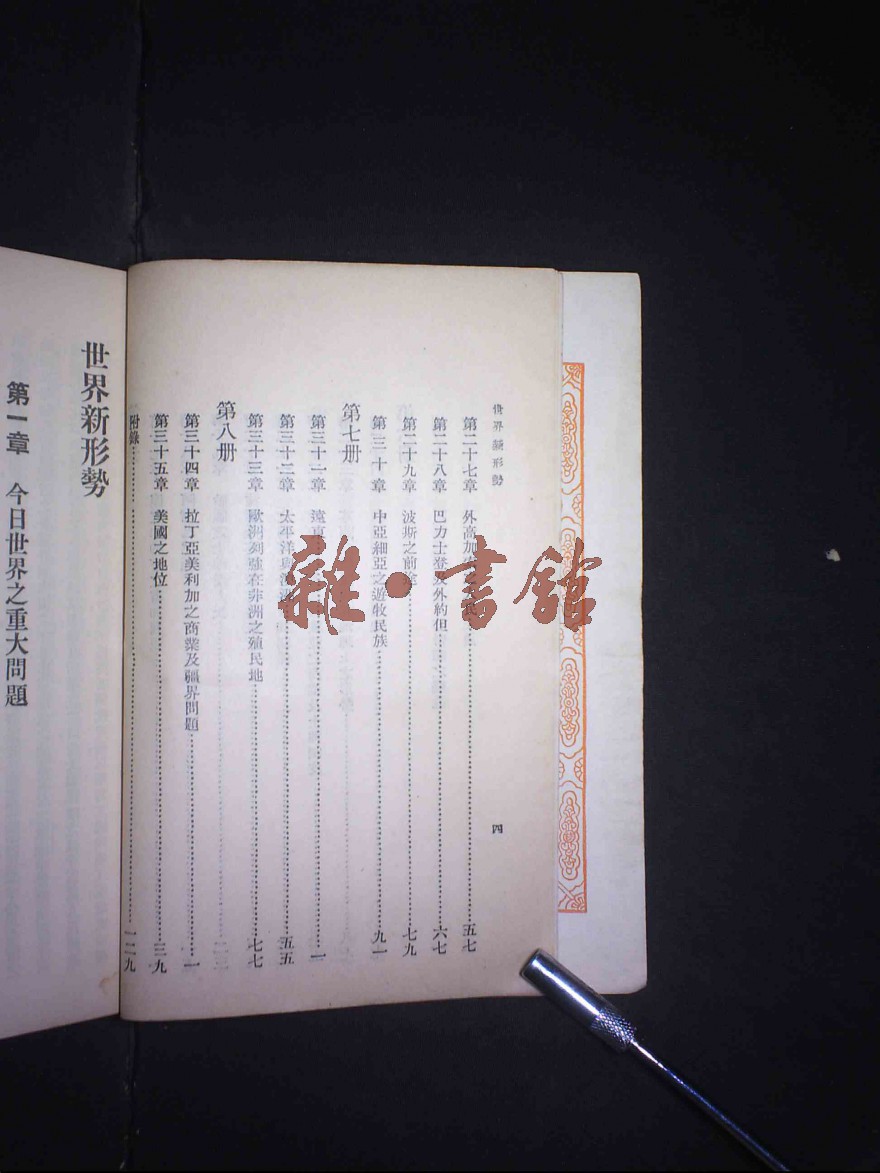 世界新形勢
四
第二十七章 外高加
五七
第二十八章 巴力士登及外約但
六七
第二十九章 波斯之前途
七九
第三十章 中亞細亞之遊牧民族
九一
第七册
第三十一章 遠東
一
第三十二章 太平洋與
五五
第三十三章 歐洲列強在非洲之殖民地
七七
第八册
第三十四章 拉丁亞美利加之商業及疆界問題
一
第三十五章 美國之地位
三九
附錄
一二九
世界新形勢
第一章 今日世界之重大問題
雜·書館